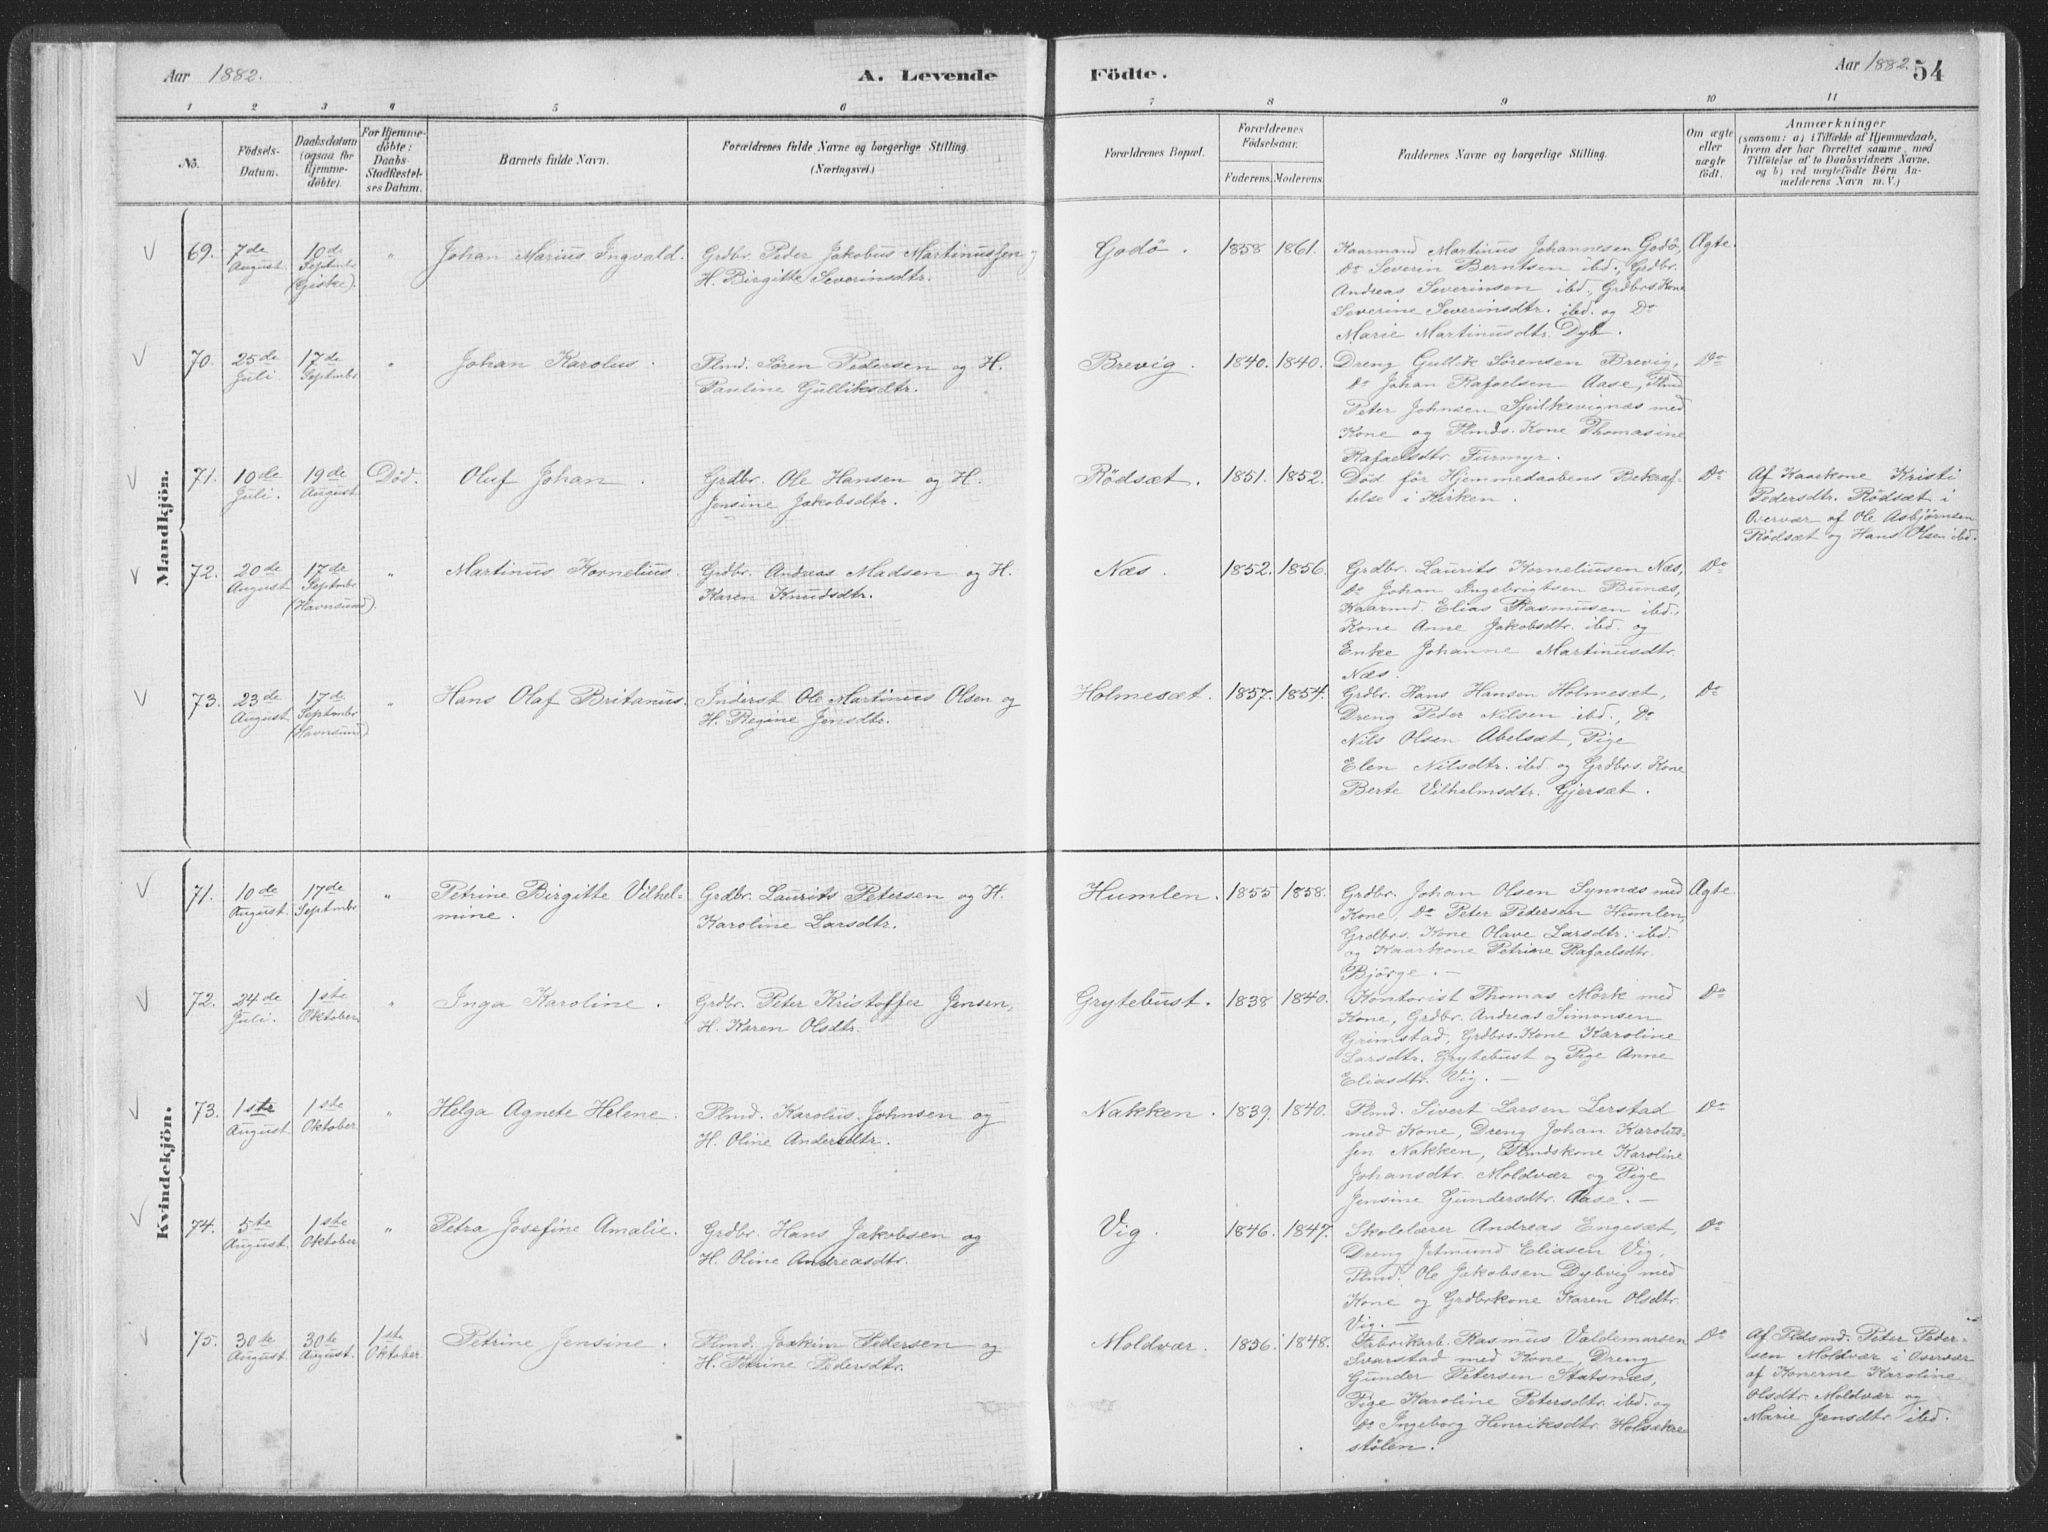 Aar 1882. A. Levende
Födte. Aar 1882. 54
1 2 3 4 5 6
7 8 9 10 11
No. Födsels-Datum. Daabsdatum (ogsaa for Hjemme-döbte). For Hjemme-döbte: Daabs-Stadfæstel-ses Datum. Barnets fulde Navn. Forældrenes fulde Navne og borgerlige Stilling. (Næringsvei.)
Forældrenes Bopæl. Forældrenes Födselsaar. Faderens. Moderens. Faddernes Navne og borgerlige Stilling. Om ægte eller uægte födt. Anmærkninger (saasom: a) i Tilfælde af Hjemmedaab, hvem der har forrettet samme, med Tilföielse af to Daabsvidners Navne, og b) ved uægtefödte Börn An-melderens Navn m. V.)
Mandkjön.
69. 7de August. 10de Septmbr. (Giske). " Johan Marius Ingvald. Grdbr. Peder Jakobus Martinussen og
H. Birgitte Severinsdtr.
Godö. 1858 1861. Kaarmand Martinus Johannesen Godö, Ægte.
Do Severin Berntsen ibd., Grdbr.
Andreas Severinsen ibd., Grdbrs. Kone
Severine Severinsdtr. ibd. og Do
Marie Martinusdtr. Dyb.
70. 25de Juli 17de Septmbr. " Johan Karolus. Plmd. Sören Pedersen og H.
Pauline Gulliksdtr.
Brevig. 1840. 1840. Dreng Gullik Sörensen Brevig, Do
Do Johan Rafaelsen Aase, Plmd
Peter Johnsen Spilkevignæs med
Kone og Plmds. Kone Thomasine
Rafaelsdtr. Furmyr.
71. 10de Juli. 19de August Död. Oluf Johan. Grdbr. Ole Hansen og H.
Jensine Jakobsdtr.
Rödsæt. 1851. 1852. Död för Hjemmedaabens Bekræf- Do
telse i Kirken.
Af Kaarkone Kristi
Pedersdtr. Rödsæt i
Overvær af Ole Asbjörnsen
Rödsæt og Hans Olsen ibd.
72. 20de August 17de Septmbr (Havnsund). " Martinus Kornelius. Grdbr. Andreas Madsen og H.
Karen Knudsdtr.
Næs. 1852. 1856. Grdbr. Laurits Korneliussen Næs, Do
Do Johan Ingebrigtsen Bunæs,
Kaarmd. Elias Rasmusen ibd.,
Kone Anne Jakobsdtr. ibd. og
Enke Johanne Martinusdtr.
Næs.
73. 23de August 17de Septmbr (Havnsund) " Hans Olaf Britanus. Inderst Ole Martinus Olsen og
H. Regine Jensdtr.
Holmesæt. 1857. 1854. Grdbr. Hans Hansen Holmesæt, Do
Dreng Peder Nilsen ibd., Do
Nils Olsen Abelsæt, Pige
Elen Nilsdtr. ibd og Grdbrs. Kone
Berte Vilhelmsdtr. Gjersæt.
Kvindekjön.
71. 10de August. 17de Septmbr " Petrine Birgitte Vilhel-
mine. Grdbr. Laurits Petersen og H.
Karoline Larsdtr.
Humlen. 1855 1858. Grdbr. Johan Olsen Synnæs med Ægte.
Kone, Do Peter Pedersen Humlen,
Grdbrs. Kone Olave Larsdtr. ibd.
og Kaarkone Petrine Rafaelsdtr.
Björge. —
72. 24de Juli. 1ste Oktober. " Inga Karoline. Grdbr. Peter Kristoffer Jensen,
H. Karen Olsdtr.
Grytebust. 1838 1840. Kontorist Thomas Mörk med Do
Kone, Grdbr. Andreas Simonsen
Grimstad, Grdbrs-Kone Karoline
Larsdtr. Grytebust og Pige Anne
Eliasdtr. Vig. —
73. 1ste August 1ste Oktober " Helga Agnete Helene. Plmd. Karolus Johnsen og
H. Oline Andersdtr.
Nakken. 1839. 1840. Plmd. Sivert Larsen Lerstad Do
med Kone, Dreng Johan Karolus-
sen Nakken, Plmdskone Karoline
Johansdtr. Moldvær og Pige
Jensine Gundersdtr. Aase. —
74. 5te August. 1ste Oktober " Petra Josefine Amalie. Grdbr. Hans Jakobsen og
H. Oline Andreasdtr.
Vig. 1846. 1847. Skolelærer Andreas Engesæt, Do
Dreng Jetmund Eliasen Vig,
Plmd. Ole Jakobsen Dybvig med
Kone og Grdbrkone Karen Olsdtr.
Vig. —
75. 30te August. 30te August. 1ste Oktober. Petrine Jensine. Plmd. Joakim Pedersen og
H. Petrine Pedersdtr.
Moldvær. 1836. 1848. Fabrikarb. Rasmus Valdemarsen Do
Svarstad med Kone, Dreng
Gunder Petersen Statsnæs,
Pige Karoline Petersdtr. ibd. og
Do Ingeborg Henriksdtr. Holsækre-
stölen.
Af Plds md. Peter Peder-
sen Moldvær i Overvær
af Konerne Karoline
Olsdtr. Moldvær og
Marie Jensdtr. ibd.